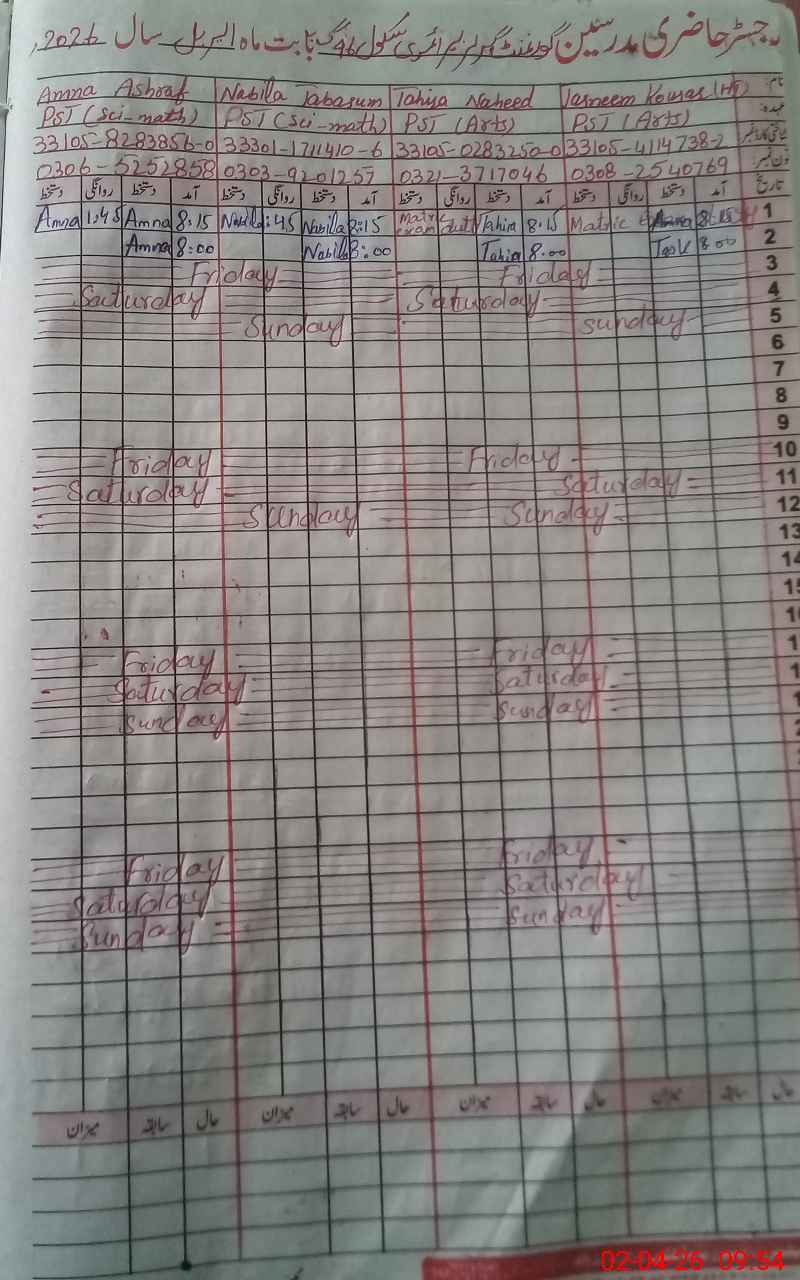 رجسٹر حاضری مدرسین گورنمنٹ گرلز پرائمری سکول 46 گ ب بابت ماہ اپریل سال 2026ء
Amna Ashraf Nabila Tabasum Tahira Naheed Tasneem Kousar (HT) نام
PST (Sci-math) PST (Sci-math) PST (Arts) PST (Arts) عہدہ
33105-8283856-0 33301-1711410-6 33105-0283250-0 33105-4114738-2 شناختی کارڈ نمبر
0306-5252858 0303-9201257 0321-3717046 0308-2540769 فون نمبر
دستخط روانگی دستخط آمد دستخط روانگی دستخط آمد دستخط روانگی دستخط آمد دستخط روانگی دستخط آمد تاریخ
Amna 1:45 Amna 8:15 Nabila 1:45 Nabila 8:15 Matric exam duty Tahira 8.15 Matric 8:15 1
Amna 8:00 Nabila 8:00 Tahira 8.00 Task 8.00 2
Friday Friday 3
Saturday Saturday 4
Sunday Sunday 5
6
7
8
9
Friday Friday 10
Saturday Saturday 11
Sunday Sunday 12
13
14
Friday Friday
Saturday Saturday
Sunday Sunday
Friday Friday
Saturday Saturday
Sunday Sunday
میزان سابقہ حال میزان سابقہ حال میزان سابقہ حال میزان سابقہ حال
02-04-26 09:54